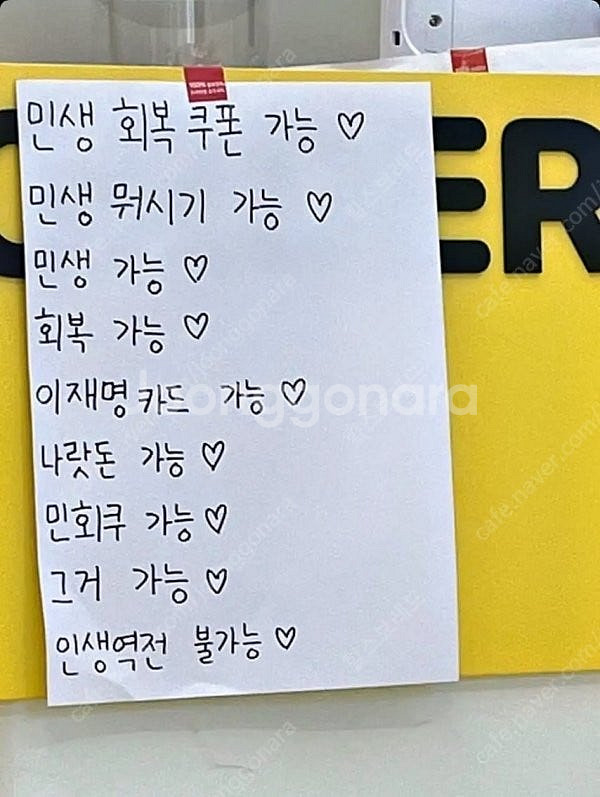 민생 회복 쿠폰 가능 ♡
민생 뭐시기 가능 ♡
민생 가능 ♡
회복 가능 ♡
이재명 카드 가능 ♡
나랏돈 가능 ♡
민회쿠 가능 ♡
그거 가능 ♡
인생역전 불가능 ♡
ER
Joonggonara